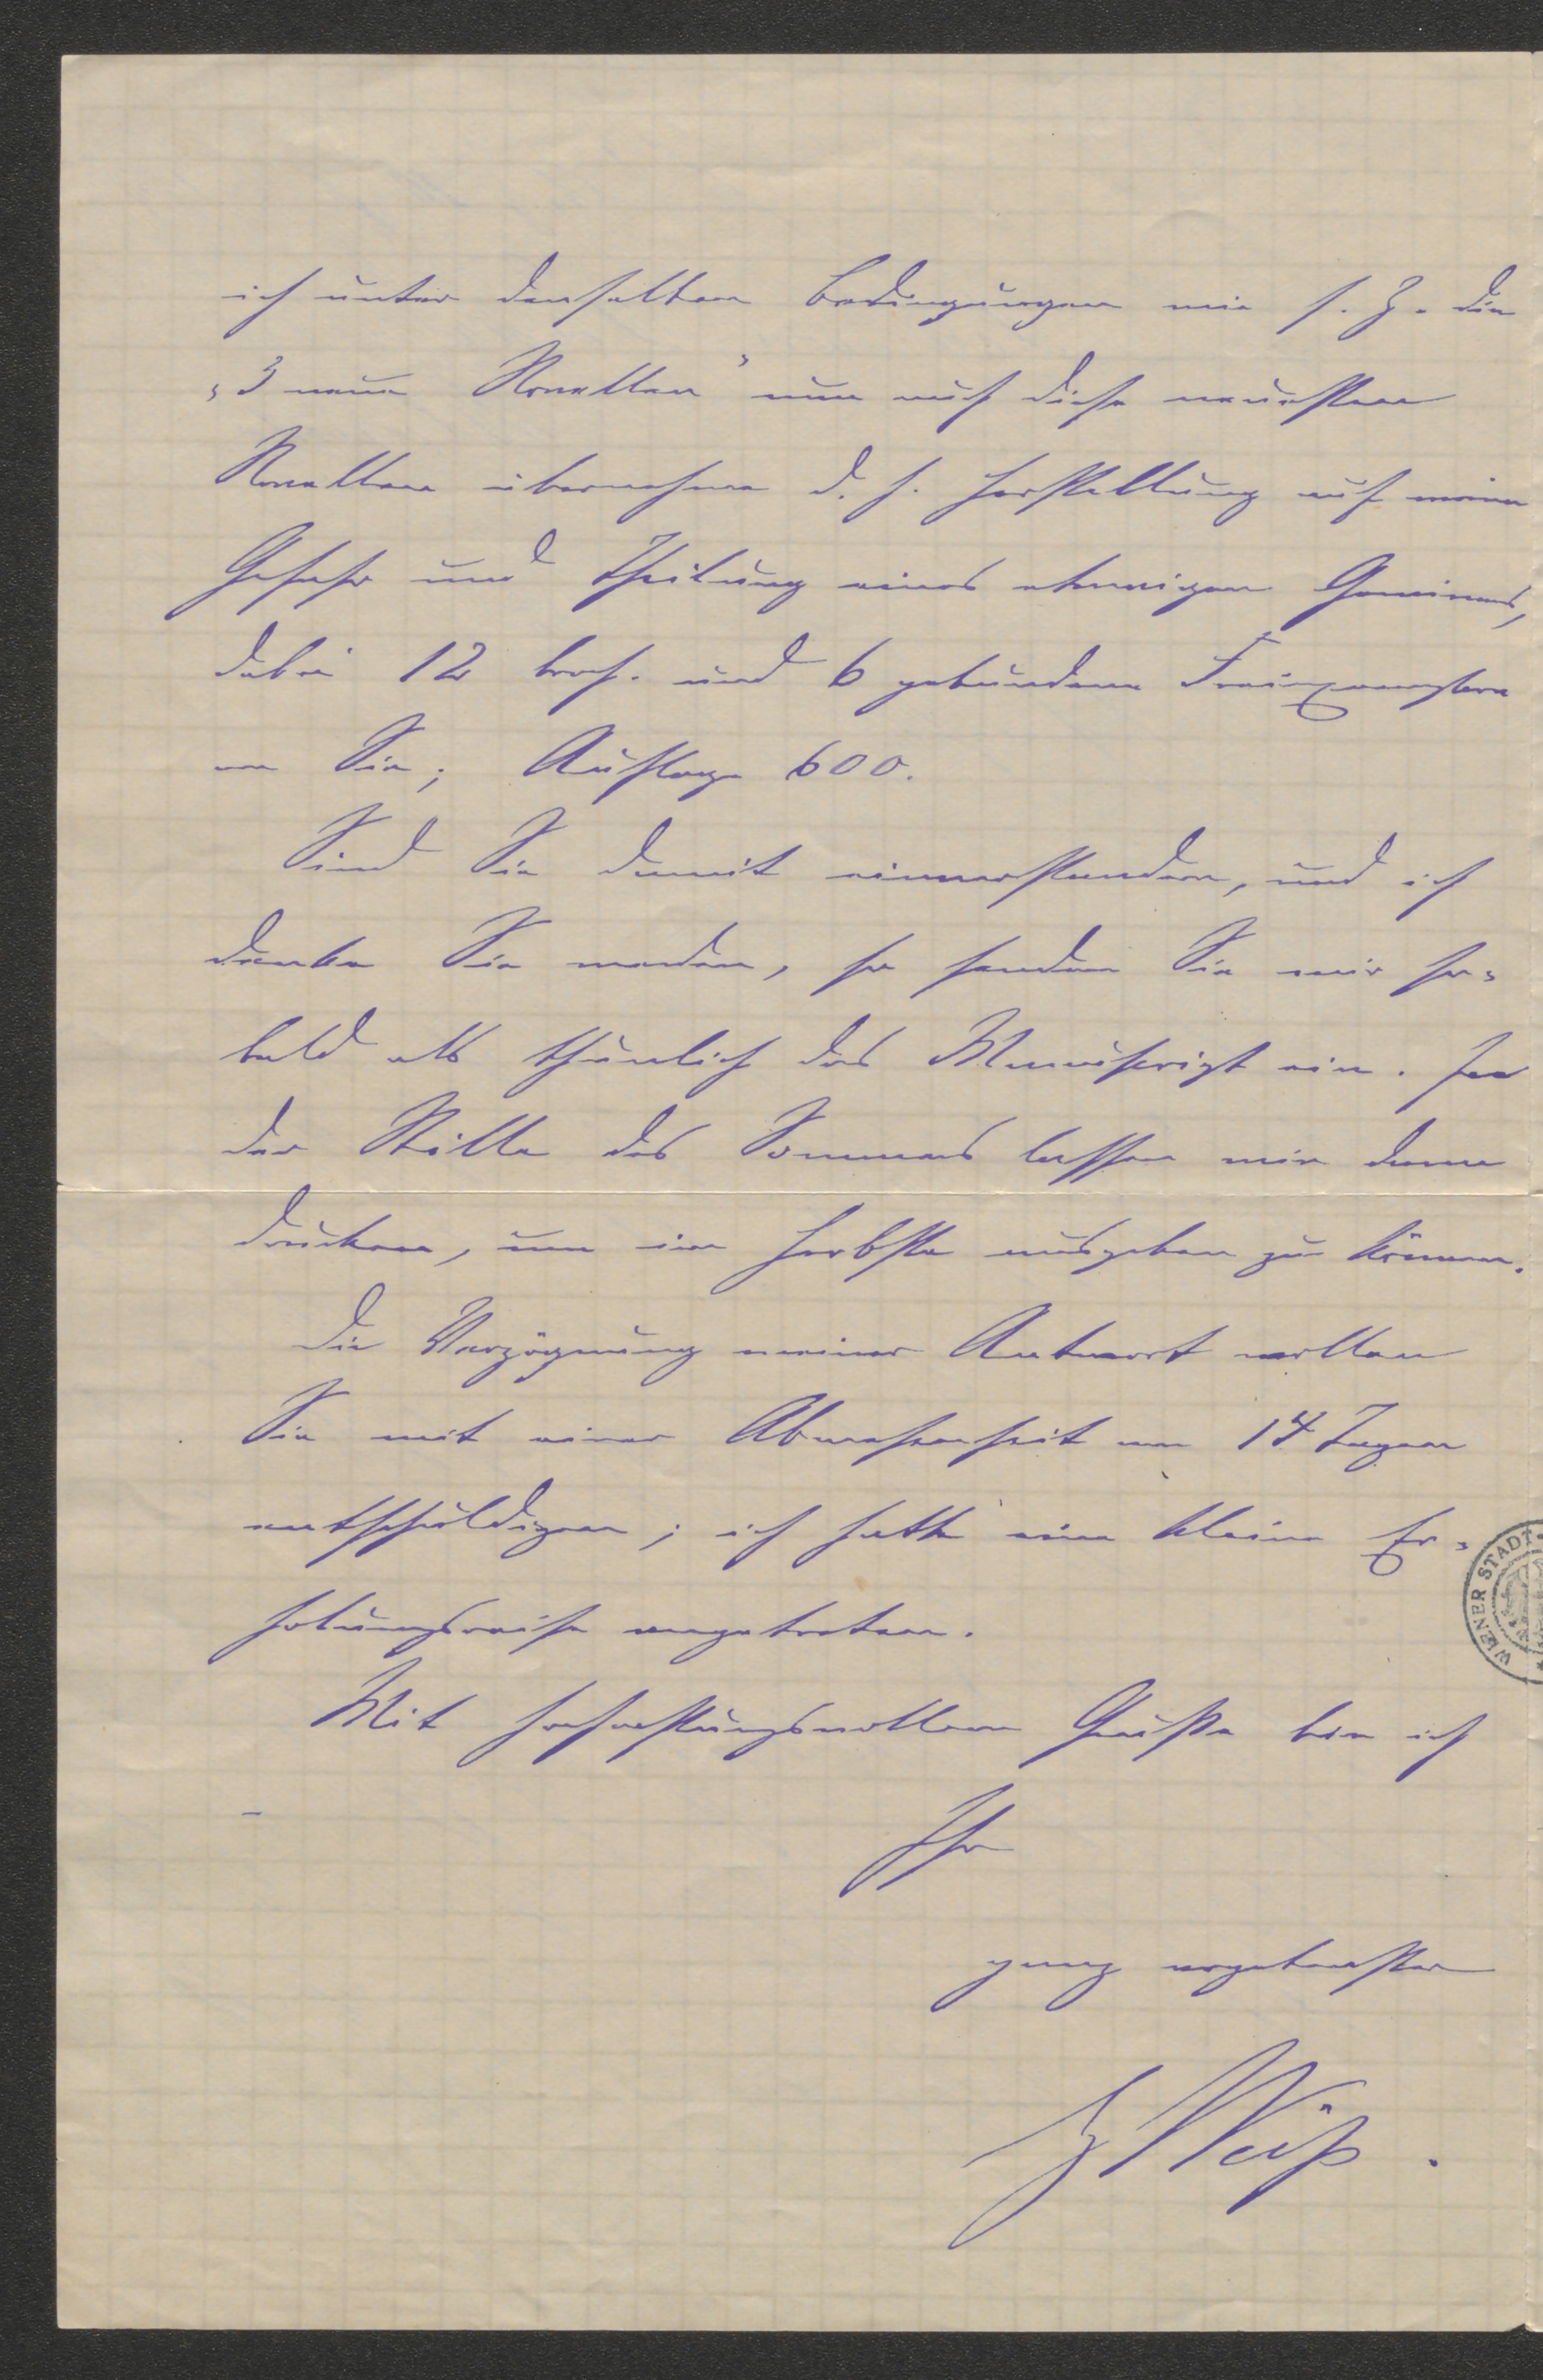 ich unter denselben Bedingungen wie s. Z. die
„3 neue Novellen" nun auch diese neuesten
Novellen übernehme d. h. Herstellung auf meine
Gefahr und Theilung eines etwaigen Gewinns,
dabei 12 broch. und 6 gebundene Freiexemplare
an Sie; Auflage 600.
Sind Sie damit einverstanden, und ich
denke Sie werden, so senden Sie mir so-
bald als thunlich das Manuscript ein. In
der Stille des Sommers lassen wir dann
drucken, um im Herbste ausgeben zu können.
Die Verzögerung meiner Antwort wollen
Sie mit einer Abwesenheit von 14 Tagen
entschuldigen; ich hatte eine kleine Er-
holungsreise angetreten.
Mit hochachtungsvollem Gruße bin ich
Ihr
ganz ergebenster
Weiß.
WIENER STADT